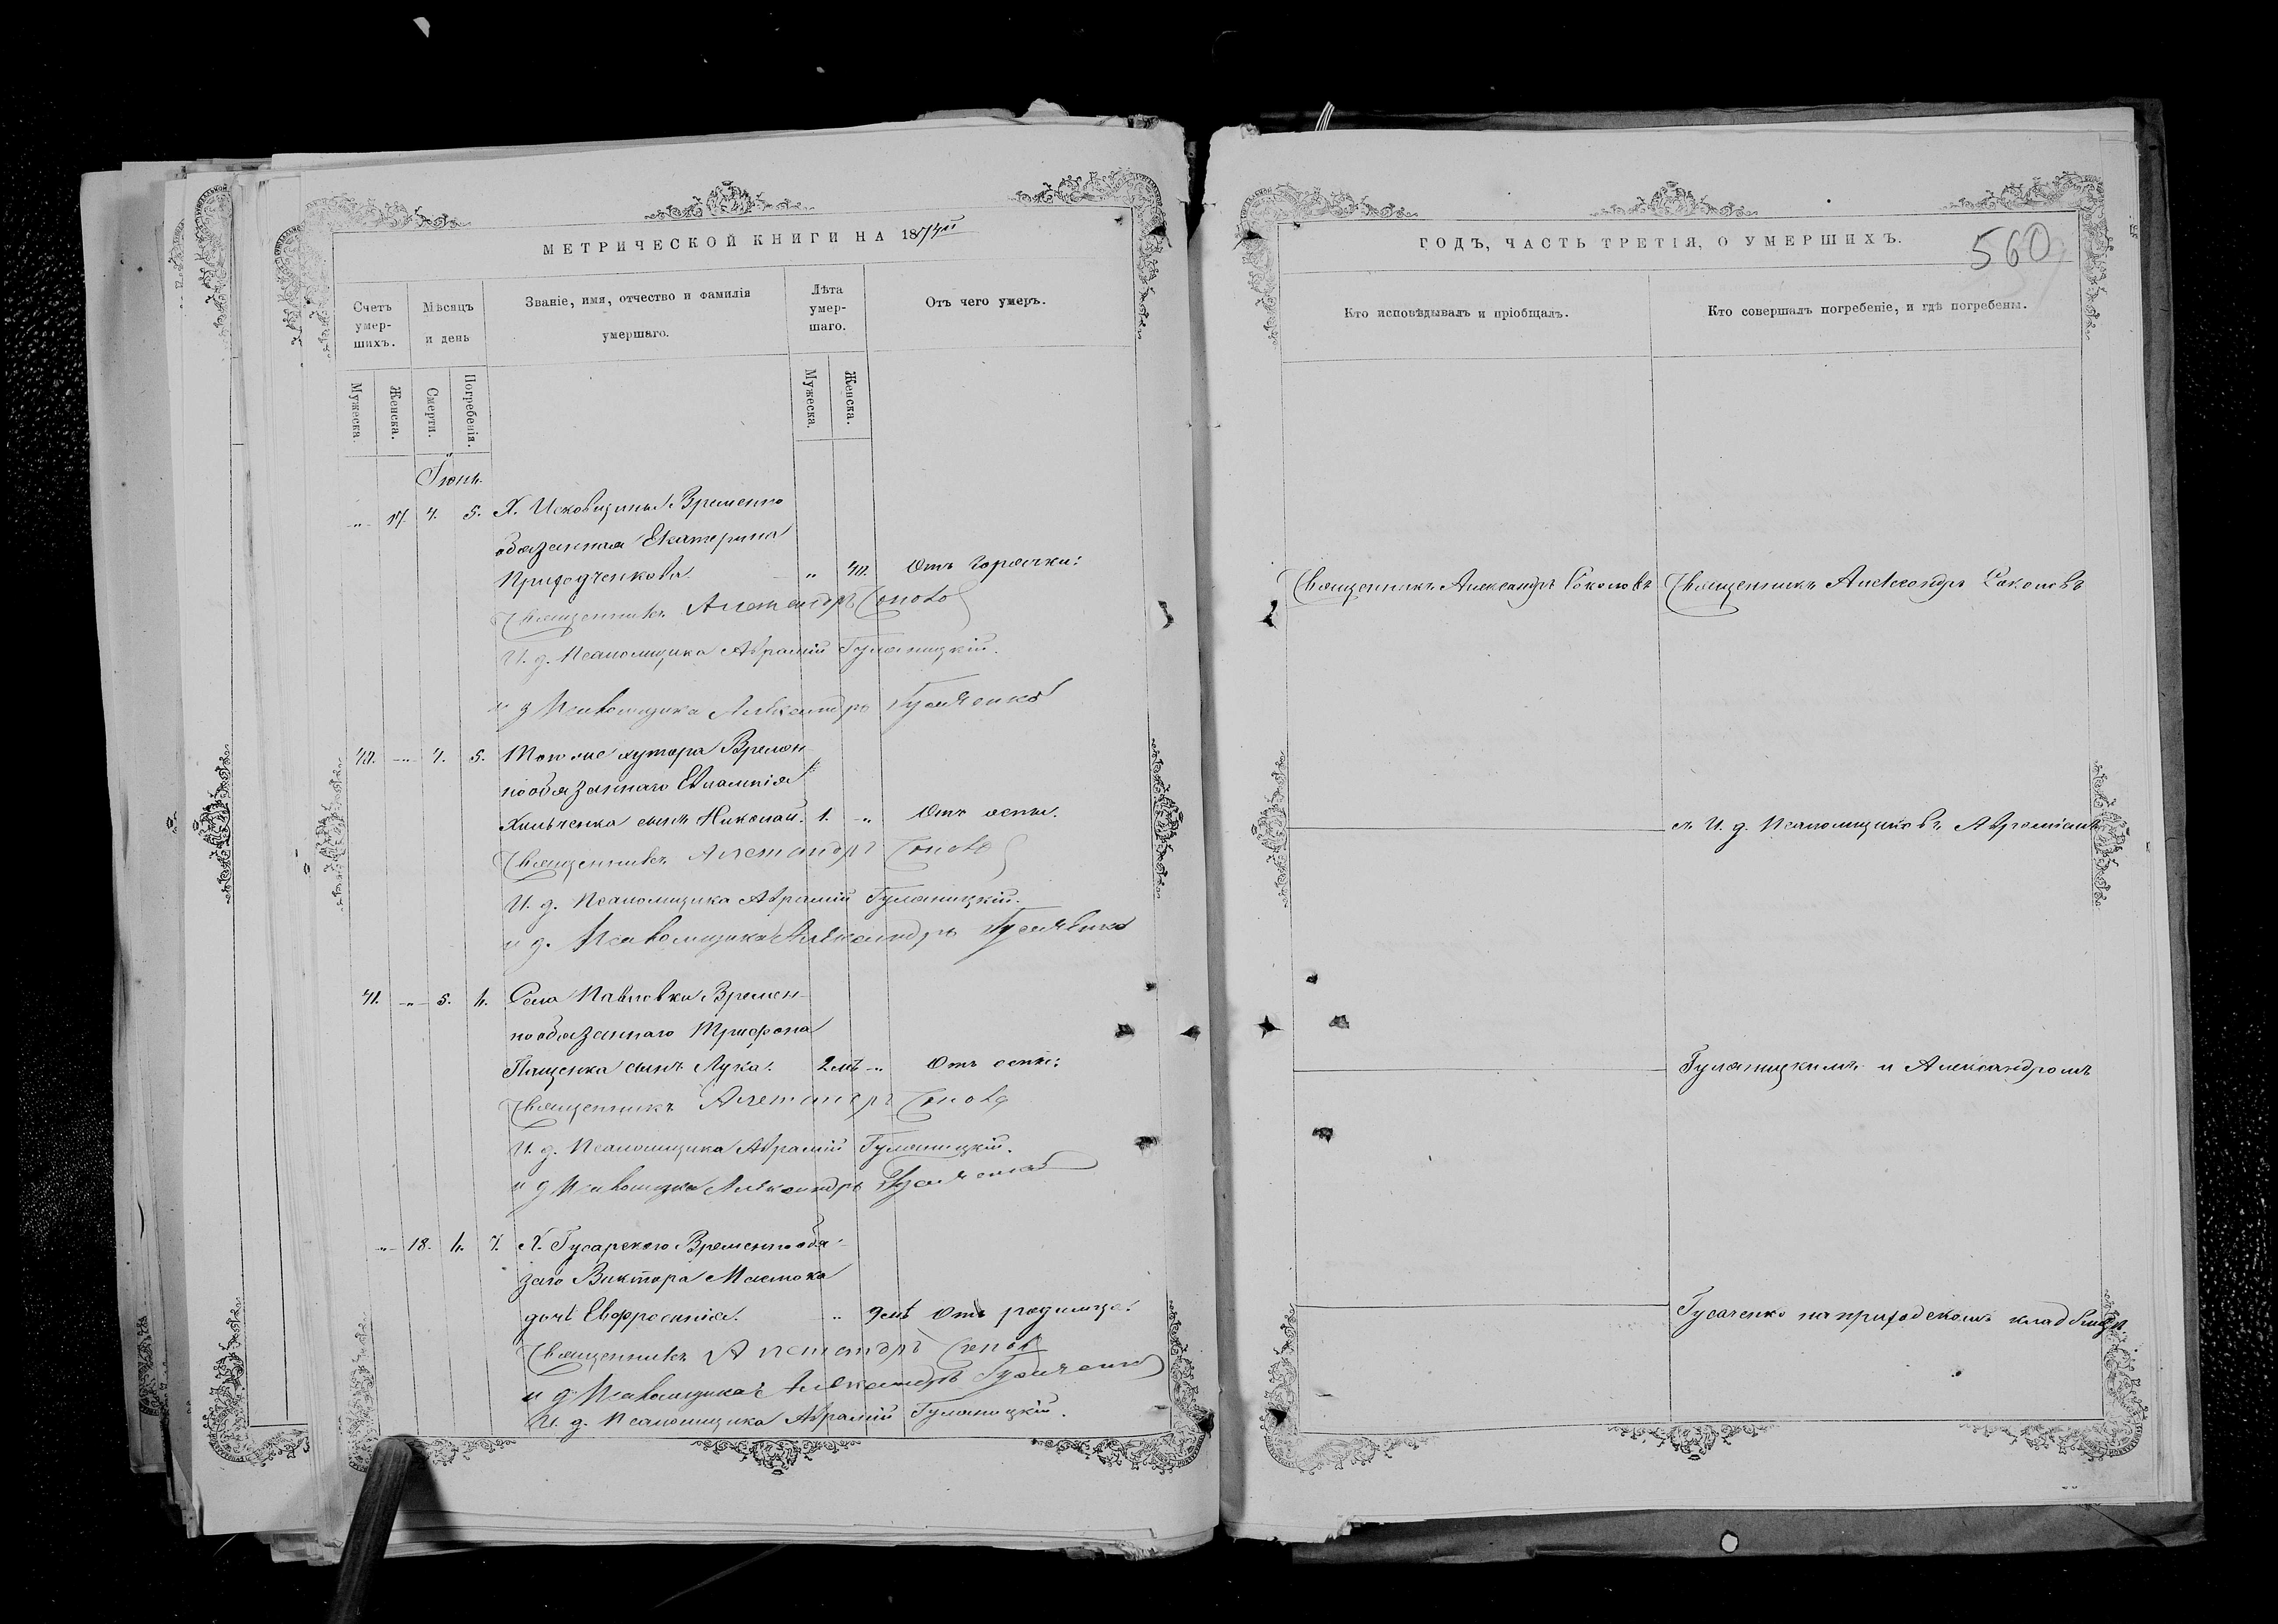 МЕТРИЧЕСКОЙ КНИГИ НА 1874й
Счетъ умер-шихъ.
Мѣсяцъ и день
Званіе, имя, отчество и фамилія умершаго.
Лѣта умер-шаго.
Отъ чего умеръ.
Мужеска.
Женска.
Смерти.
Погребенія.
Мужеска.
Женска.
Іюнь
„ 17. 4. 5. Х. Исковщины Временно
обязанная Екатерина
Приходченкова. „ 40. Отъ горячки.
Священникъ Александръ Соколовъ
И. д. Псаломщика Аврамій Гуляницкій.
и д Псаломщика Александръ Гусаченко
40. „ 4. 5. Того же хутора Времен-
нообязаннаго Евлампія
Хильченка сынъ Николай. 1. „ Отъ оспы.
Священникъ Александръ Соколовъ
И. д. Псаломщика Аврамій Гуляницкій.
и д. Псаломщика Александръ Гусаченко
41. „ 5. 6. Села Павловки Времен-
нообязаннаго Трифона
Пащенка сынъ Лука. 2 мѣ „ Отъ оспы.
Священникъ Александръ Соколовъ
И. д. Псаломщика Аврамій Гуляницкій.
и д Псаломщика Александръ Гусаченко
„ 18. 6. 7. Х. Гусарского Временнообя-
заго Виктора
дочь Евфросинія. „ 9 мѣ Отъ родимца.
Священникъ Александръ Соколовъ
и д Псаломщика Александръ Гусаченко
И. д. Псаломщика Аврамій Гуляницкій.
ГОДЪ, ЧАСТЬ ТРЕТІЯ, О УМЕРШИХЪ.
560
Кто исповѣдывалъ и пріобщалъ.
Кто совершалъ погребеніе, и гдѣ погребены.
Священникъ Александръ Соколовъ
Священникъ Александръ Соколовъ
съ И. д. Псаломщиковъ Авраміемъ
Гуляницкимъ и Александромъ
Гусаченко на приходскомъ кладбищѣ